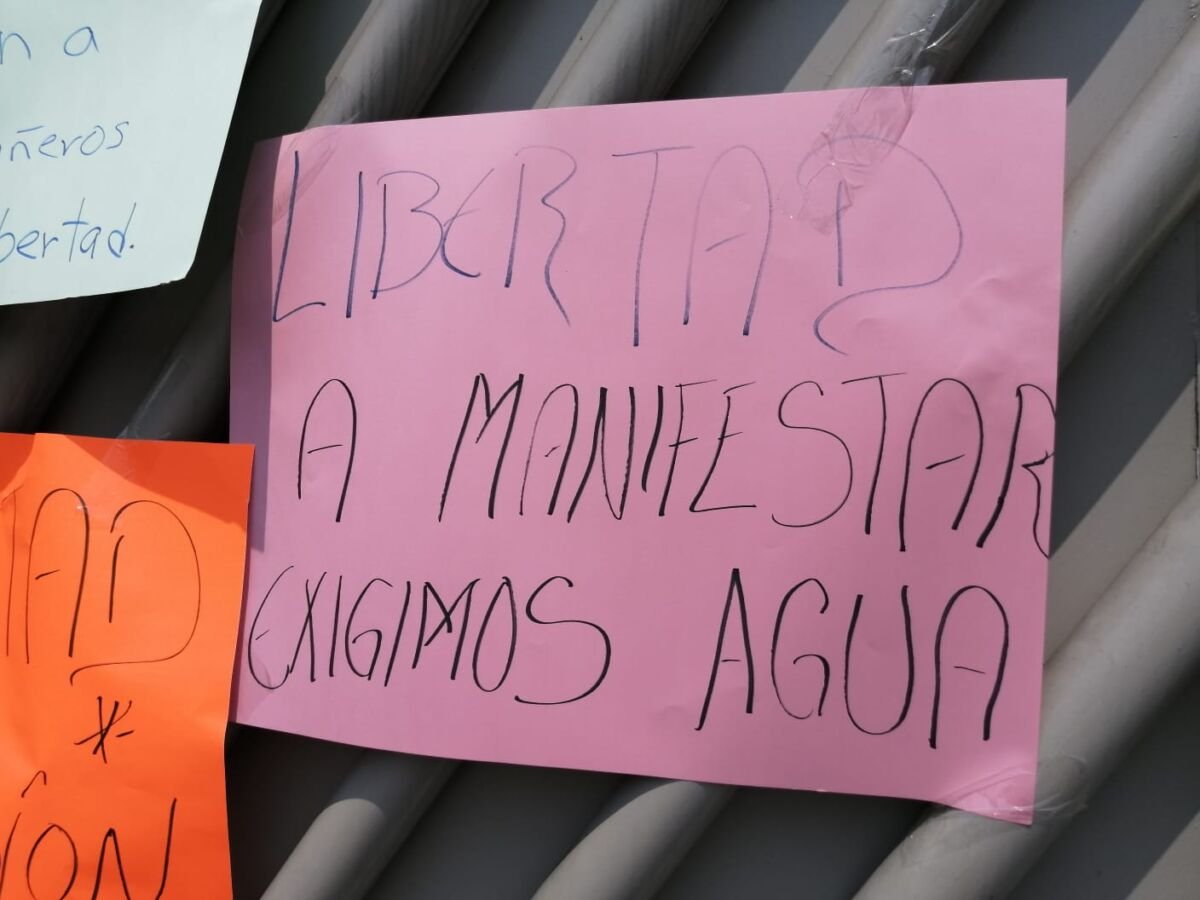 n a
ñeros
bertad.
LIBERTAD
A MANIFESTAR
EXIGIMOS AGUA
TAD
*
IÓN